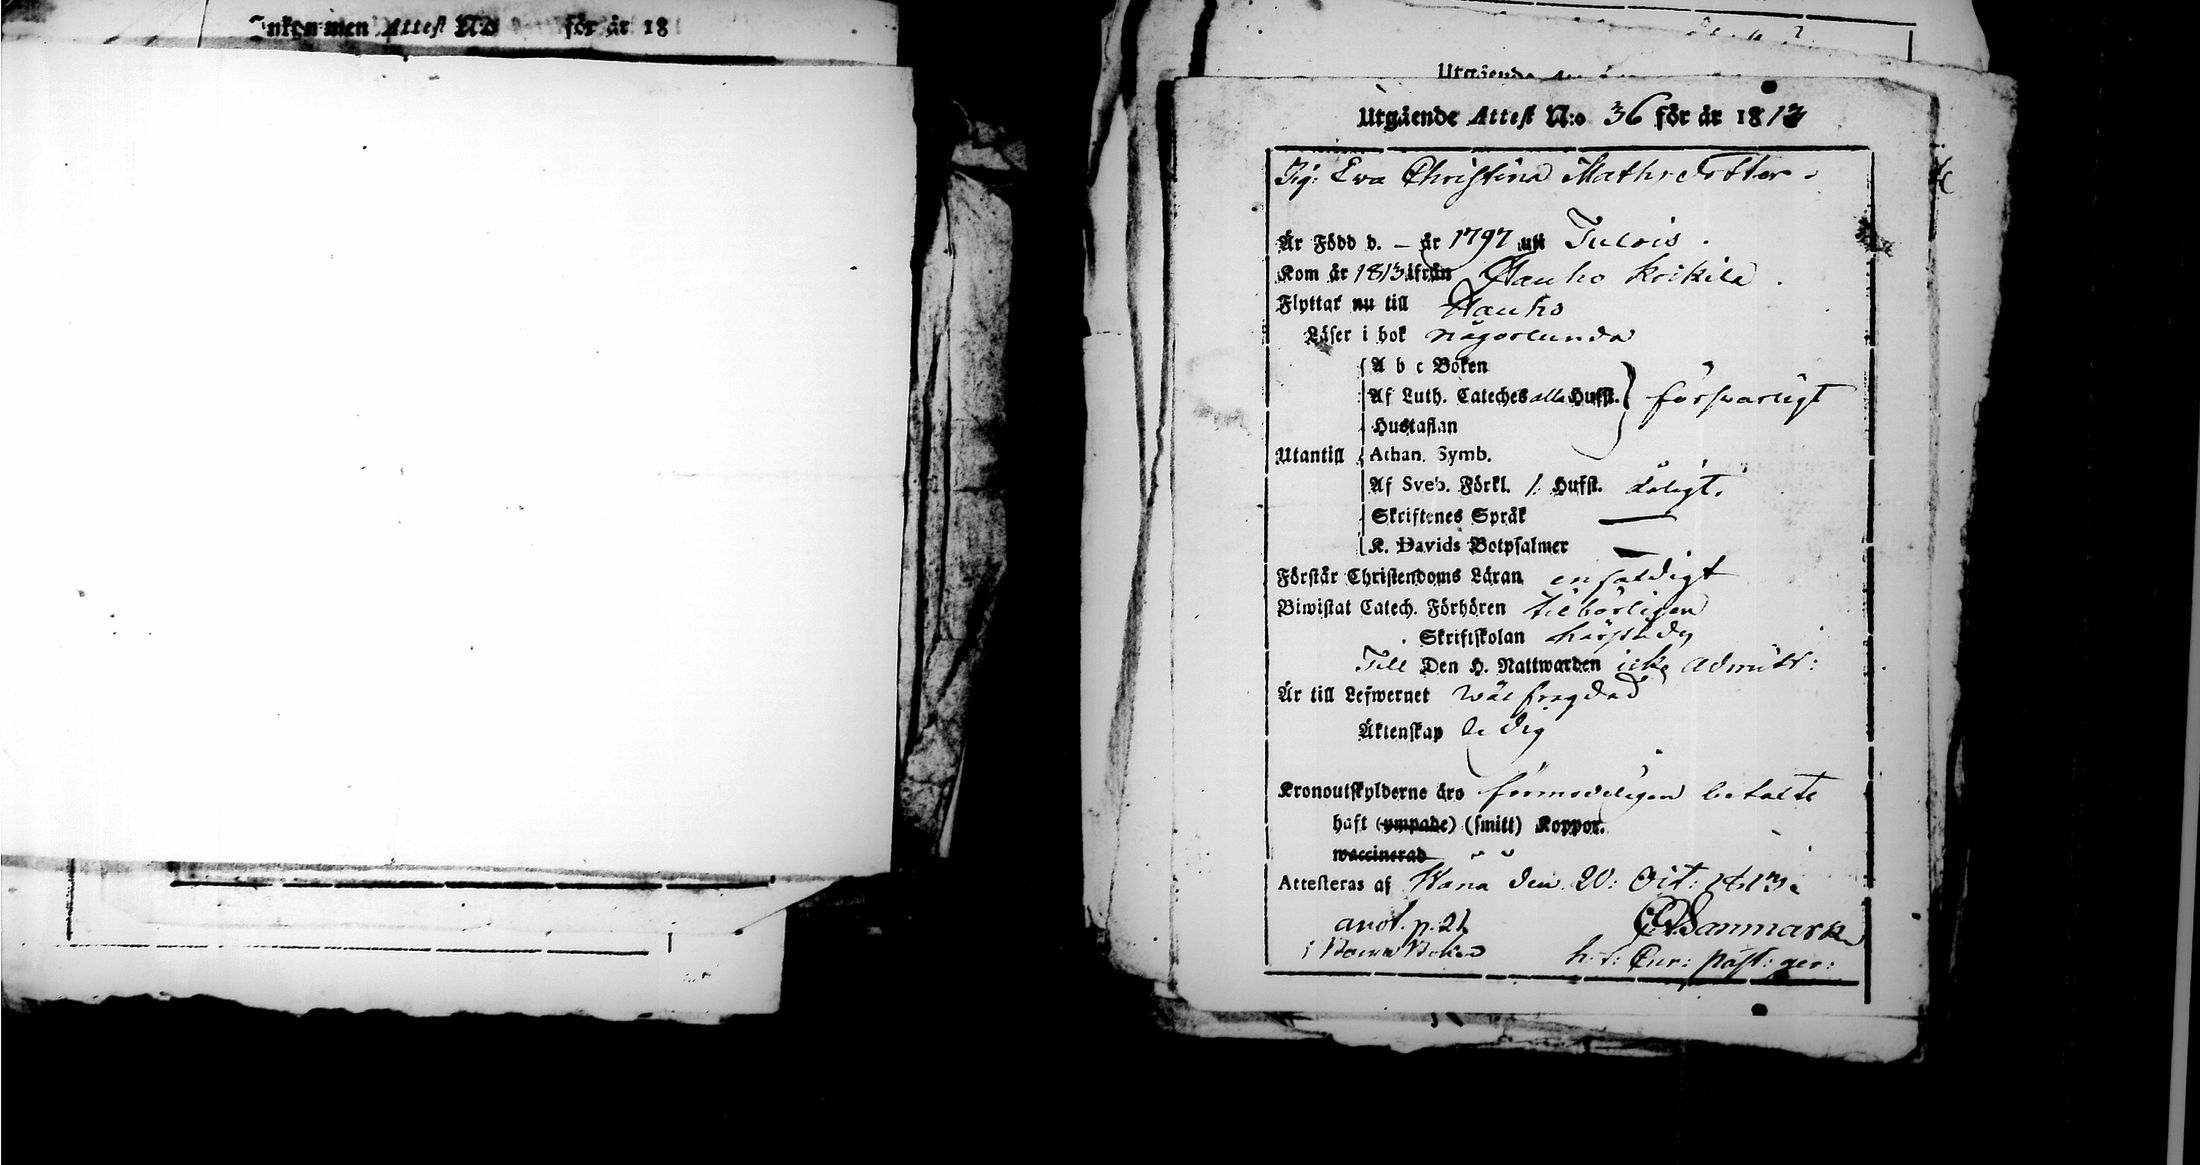 Inkommen Attest N:o för år 18
Utgående
Utgående Attest N:o 36 för år 1813
Pig: Ewa Christina Mathsdotter
Är Född d. – år 1797 uti Tulois.
Kom år 1813 ifrån Hauho Koikila.
Flyttar nu till Hauho
Läser i bok någorlunda
A b c Boken
Af Luth. Cateches alla Hufst. } försvarligt
Hustaflan
Utantill Athan. Symb.
Af Sveb. Förkl. 1: Hufst. dåligt.
Skriftenes Språk —
K. Davids Botpsalmer —
Förstår Christendoms Läran enfaldigt
Biwistat Catech. Förhören tilbörligen
Skriftskolan härstädes
Till Den H. Nattwarden icke admitt:
Är till Lefwernet wäl frägdad
Äktenskap ledig
Kronoutskylderne äro förmodeligen betalte
haft (ympade) (smitt) Koppor.
waccinerad
Attesteras af Wånå den 20: Oct: 1813.
anot. p. 21
i Barna Boken Sanmark
Cur: past: ger: